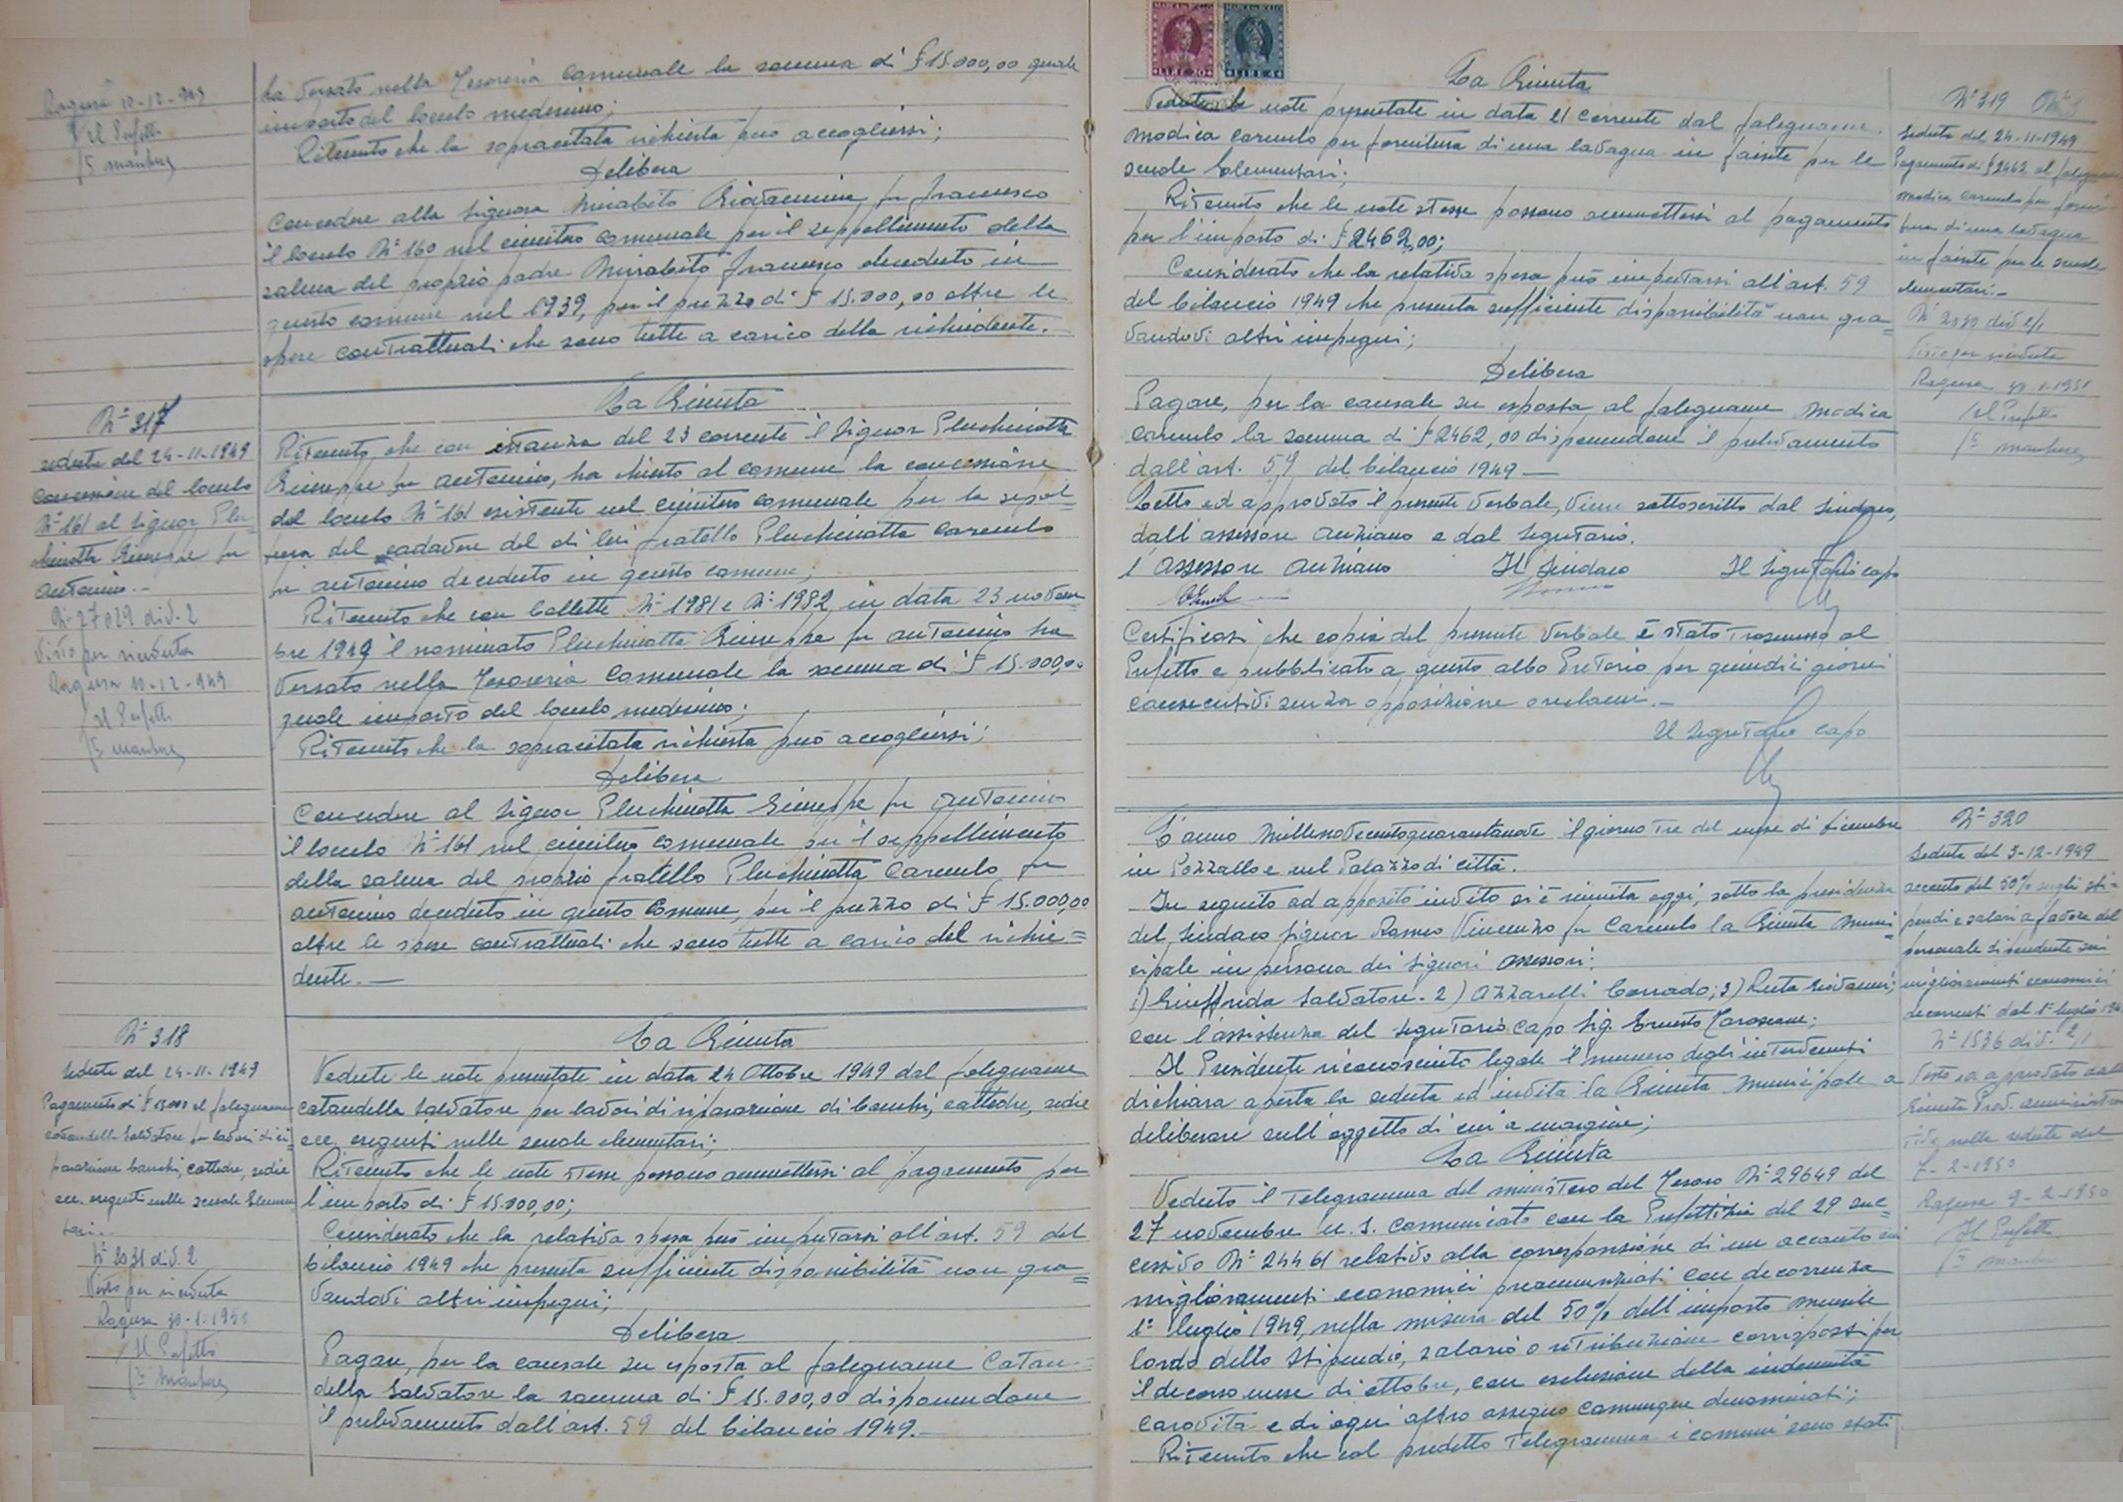 Ragusa 10-12-949
Il Prefetto
ha versato nella Tesoreria comunale la somma di £ 15.000,00 quale
importo del loculo medesimo;
Ritenuto che la sopracitata richiesta può accogliersi;
Delibera
Concedere alla Signora Mirabito fu Francesco
il loculo N° 160 nel cimitero comunale per il seppellimento della
salma del proprio padre Mirabito Francesco deceduto in
questo comune nel 1939, per il prezzo di £ 15.000,00 oltre le
spese contrattuali che sono tutte a carico della richiedente.
N° 317
seduta del 24-11-1949
Concessione del loculo
N° 161 al Signor Plu-
chinotta Giuseppe fu
Antonino.-
N° 27029 div. 2
Visto per ricevuta
Ragusa 10-12-949
Il Prefetto
La Giunta
Ritenuto che con istanza del 23 corrente il Signor Pluchinotta
Giuseppe fu Antonino, ha chiesto al comune la concessione
del loculo N° 161 esistente nel cimitero comunale per la sepol=
tura del cadavere del di lui fratello Pluchinotta Carmelo
fu Antonino deceduto in questo comune;
Ritenuto che con bollette N° 1981 e N° 1982 in data 23 novem
bre 1949 il nominato Pluchinotta Giuseppe fu Antonino ha
versato nella Tesoreria Comunale la somma di £ 15.000,00
quale importo del loculo medesimo;
Ritenuto che la sopracitata richiesta può accogliersi;
Delibera
Concedere al Signor Pluchinotta Giuseppe fu Antonino
il loculo N° 161 nel cimitero comunale per il seppellimento
della salma del proprio fratello Pluchinotta Carmelo fu
Antonino deceduto in questo Comune, per il prezzo di £ 15.000,00
oltre le spese contrattuali che sono tutte a carico del richie=
dente.—
N° 318
Seduta del 24-11-1949
Pagamento di £ 15000 al falegname
Catandella Salvatore per lavori di ri=
parazione banchi, cattedre, sedie
ecc. eseguiti nelle scuole Elemen
tari.-
N° 2031 div. 2
Visto per ricevuta
Ragusa 30-1-1950
Il Prefetto
La Giunta
Vedute le note presentate in data 24 Ottobre 1949 dal falegname
Catandella Salvatore per lavori di riparazione di banchi, cattedre, sedie
ecc. eseguiti nelle scuole elementari;
Ritenuto che le note stesse possono ammettersi al pagamento per
l'importo di £ 15.000,00;
Considerato che la relativa spesa può imputarsi all'art. 59 del
bilancio 1949 che presenta sufficiente disponibilità non gra=
vandovi altri impegni;
Delibera
Pagare, per la causale su esposta al falegname Catan-
della Salvatore la somma di £ 15.000,00 disponendone
il prelevamento dall'art. 59 del bilancio 1949.-
MARCA DA BOLLO
LIRE 20
MARCA DA BOLLO
LIRE 4
La Giunta
Vedute le note presentate in data 21 corrente dal falegname
Modica Carmelo per fornitura di una lavagna in faisite per le
scuole Elementari;
Ritenuto che le note stesse possono ammettersi al pagamento
per l'importo di £ 2462,00;
Considerato che la relativa spesa può imputarsi all'art. 59
del bilancio 1949 che presenta sufficiente disponibilità non gra=
vandovi altri impegni;
Delibera
Pagare, per la causale su esposta al falegname Modica
Carmelo la somma di £ 2462,00 disponendone il prelevamento
dall'art. 59 del bilancio 1949—
Letto ed approvato il presente verbale, viene sottoscritto dal Sindaco,
dall'assessore anziano e dal Segretario.
L'Assessore anziano Il Sindaco Il Segretario capo
Certificasi che copia del presente verbale è stato trasmesso al
Prefetto e pubblicato a questo albo Pretorio per quindici giorni
consecutivi senza opposizione o reclami.—
Il Segretario Capo
N° 319
Seduta del 24-11-1949
Pagamento di £ 2462 al falegname
Modica Carmelo per forni
tura di una lavagna
in faisite per le scuole
elementari.-
N° 2030 div
Visto per ricevuta
Ragusa 30-1-1950
Il Prefetto
L'anno Millenovecentoquarantanove il giorno tre del mese di Dicembre
in Pozzallo e nel Palazzo di Città.
In seguito ad apposito invito si è riunita oggi, sotto la presidenza
del Sindaco Signor Romeo Vincenzo fu Carmelo la Giunta Muni=
cipale in persona dei Signori Assessori:
1) Giuffrida Salvatore- 2) Azzarelli Corrado; 3) Ruta Giovanni;
con l'assistenza del Segretario Capo Sig. Ernesto
Il Presidente riconosciuto legale il numero degli intervenuti
dichiara aperta la seduta ed invita la Giunta Municipale a
deliberare sull'oggetto di cui a margine;
La Giunta
Veduto il telegramma del Ministero del Tesoro N° 29649 del
27 novembre u.s. comunicato con la Prefettizia del 29 suc=
cessivo N° 24461 relativo alla corresponsione di un acconto sui
miglioramenti economici preannunziati con decorrenza
1° luglio 1949, nella misura del 50% dell'importo mensile
lordo dello stipendio, salario o retribuzione corrisposti per
il decorso mese di ottobre, con esclusione della indennità
carovita e di ogni altro assegno comunque denominati;
Ritenuto che col predetto telegramma i comuni sono stati
N° 320
Seduta del 3-12-1949
acconto del 50% sugli sti=
pendi e salari a favore del
personale dipendente sui
miglioramenti economici
decorrenti dal 1° luglio 194
N° 1536 div. 2/1
Visto ed approvato dalla
Giunta Prov. amministra
tiva nella seduta del
7-2-1950
Ragusa 9-2-1950
Il Prefetto